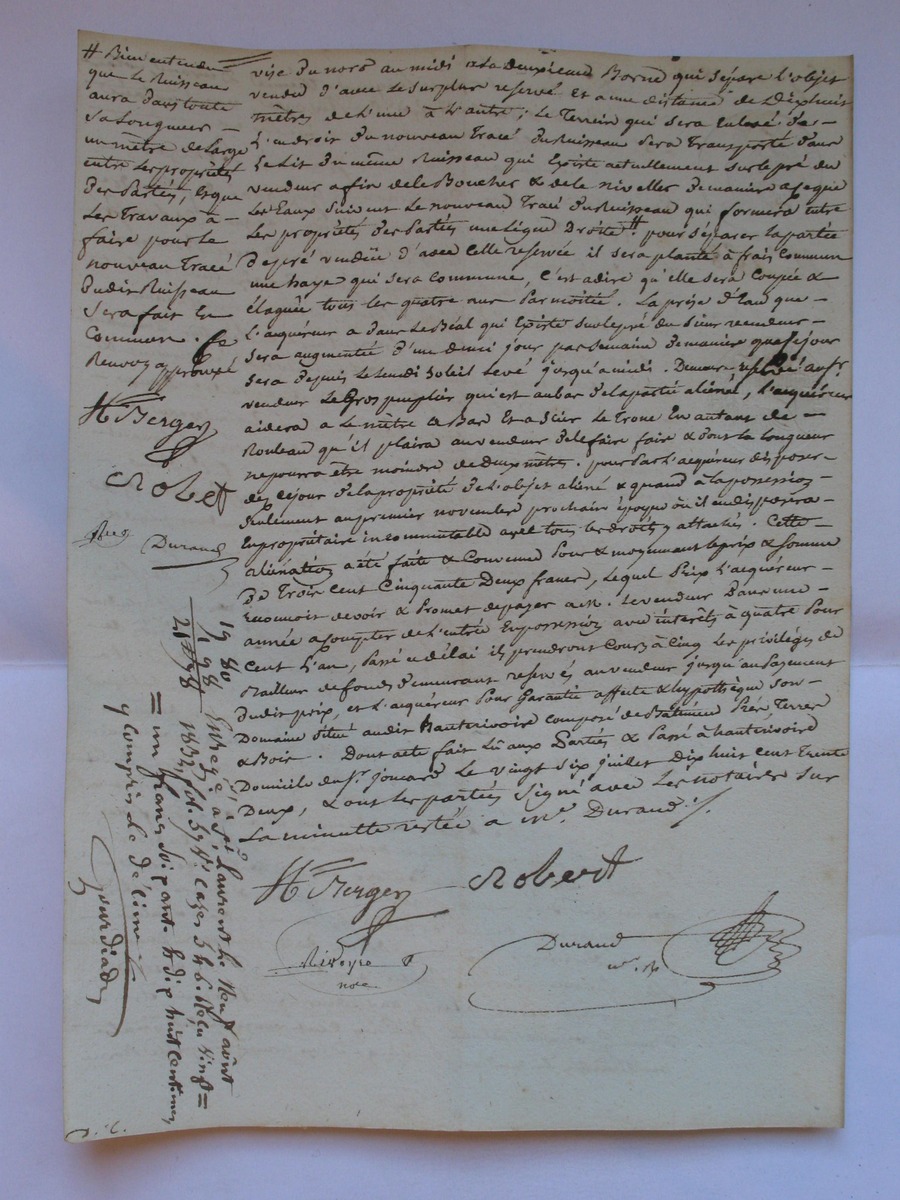 vise du nord au midi a la deuxieme Borne qui sépare l'objet
vendu d'avec le surplus reservé et a une distance de dixhuit
mètres de l'une à l'autre; le Terrein qui sera enlevé de
l'endroit du nouveau Tracé du Ruisseau sera Transporté dans
le Lit du même Ruisseau qui Existe actuellement sur le pré du
vendeur afin de le Boucher & de le niveller de manière a ce que
les Eaux suivent le nouveau Tracé du Ruisseau qui formera entre
les propriétés des Parties une ligne Droite # pour séparer la partie
de pré vendüe d'avec celle reservée il sera planté à frais commun
une haye qui sera commune, c'est adire qu'elle sera Coupée &
élaguée tous les quatre ans Par moitié. La prise d'eau que
l'acquéreur a dans le Béal qui Existe sur le pré du sieur vendeur
sera augmentée d'un demi jour par semaine de manière que
sera depuis le Lundi Soleil Levé jusqu'a midi. Demeure au Sr
vendeur le Gros peuplier qui est au bas de la partie aliéné, l'acquéreur
aidera a le mettre a Bas Et a Scier le Tronc En autant de
Rouleau qu'il plaira au vendeur de le faire faire & dont la longueur
ne pourra être moindre de deux mètres. pour Par l'acquéreur disposer
dès ce jour de la propriété de l'objet aliéné & quand à la possession
seulement au premier novembre prochain époque où il en disposera
En propriétaire incommutable avec tous les droits y attachés. Cette
aliénation a été faite & Convenue Pour & moyennant le prix & somme
De Trois cent Cinquante Deux francs, lequel Prix l'acquéreur
Reconnoit devoir & Promet de payer a M. le vendeur Dans une
année a compter de l'entrée En possession avec intérêts à quatre Pour
Cent l'an, Passé ce délai ils prendront Cours à Cinq les privilèges de
Bailleur de fonds demeurant reservés au vendeur jusqu'au Payement
dudit prix, et l'acquéreur Pour Garantie affecte & hypothèque son
Domaine situé audit hauterivoire composé de Bâtiment Prés Terres
& Bois. Dont acte fait Lû aux Parties & Passé à hauterivoire
Domicile du Sr. Joucard Le vingt Six juillet Dix huit cent Trente
Deux, & ont les parties Signé avec Les notaires sur
La minutte restée a Me. Durand ./.
# Bien entendu
que le Ruisseau
aura dans toute
sa Longueur
un mètre de Large
entre les propriétés
des Parties, Et que
Les Travaux à
faire pour le
nouveau Tracé
Dudit Ruisseau
Sera fait En
Commun. Ce
Renvoy approuvé
H Berger
Robert
Durand
19 80
1 98
21 78
Enregé. à St. Laurent le Neuf août
1832 fol. Reçu vingt =
= un francs Soixante & dix huit Centimes
y Compris le décime
H Berger
Robert
Durand